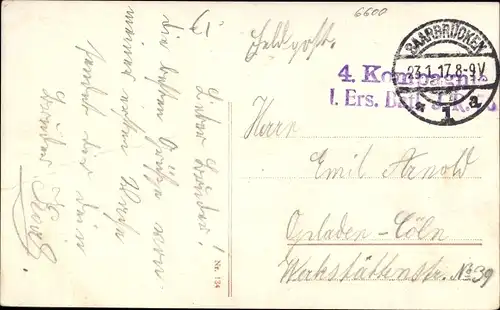 6600
Feldpost.
SAARBRÜCKEN
23.1.17.8-9V
* 1 a
4. Kompagnie
I. Ers. Batl.
Herrn
Emil Arnold
Opladen-Cöln
Werkstättenstr. No 39
Nr. 134
Lieber Bruder!
Die besten Grüße von
meiner ersten
sendet dir dein
Bruder Karl